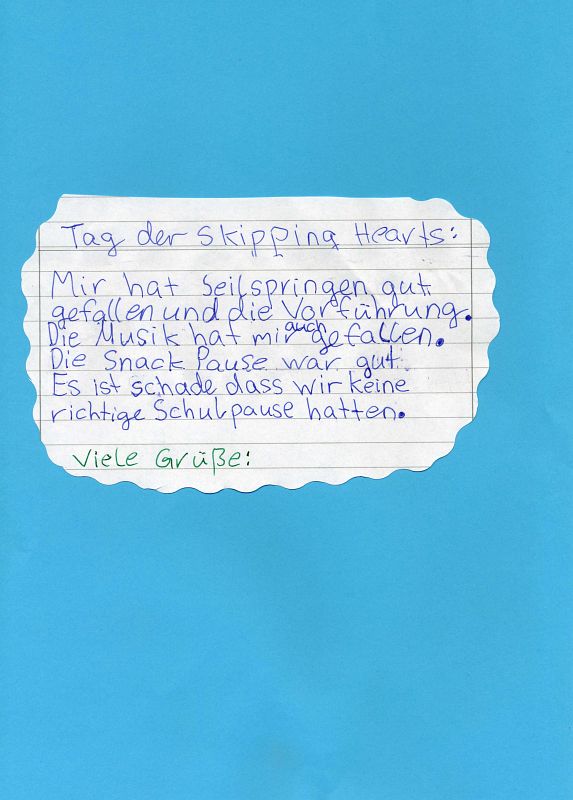 Tag der Skipping Hearts:
Mir hat Seilspringen gut
gefallen und die Vorführung.
Die Musik hat mir auch gefallen.
Die Snack Pause war gut.
Es ist schade dass wir keine
richtige Schulpause hatten.
Viele Grüße: